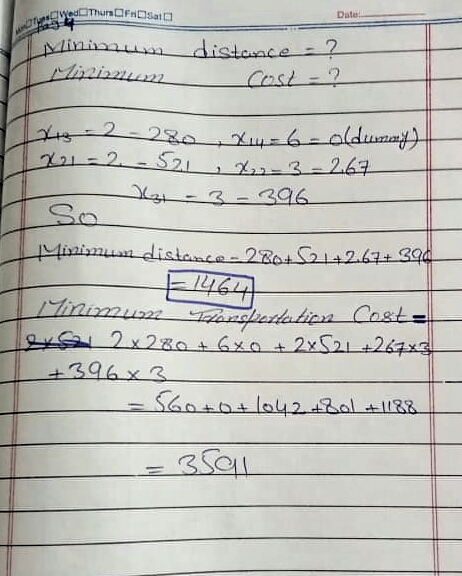 Mon☐Tues☐Wed☐Thurs☐Fri☐Sat☐ Date:
Minimum distance = ?
Minimum Cost = ?
x13 = 2 - 280 , x14 = 6 = 0 (dummy)
x21 = 2 - 521 , x22 = 3 = 267
x31 - 3 - 396
So
Minimum distance - 280 + 521 + 267 + 396
= 1464
Minimum Transportation Cost =
2x521 2x280 + 6x0 + 2x521 + 267x3
+ 396 x 3
= 560 + 0 + 1042 + 801 + 1188
= 3591